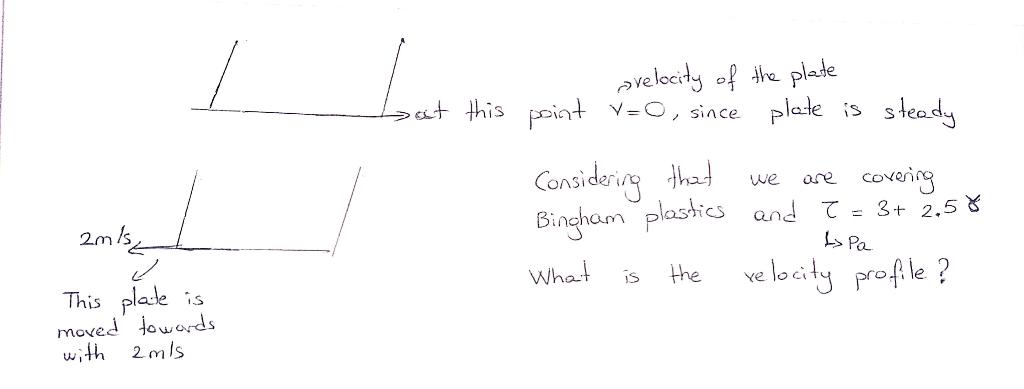 velocity of the plate
at this point v=0, since plate is steady
Considering that we are covering
Bingham plastics and τ = 3+ 2.5 γ
Pa
What is the velocity profile?
2m/s
This plate is
moved towards
with 2m/s